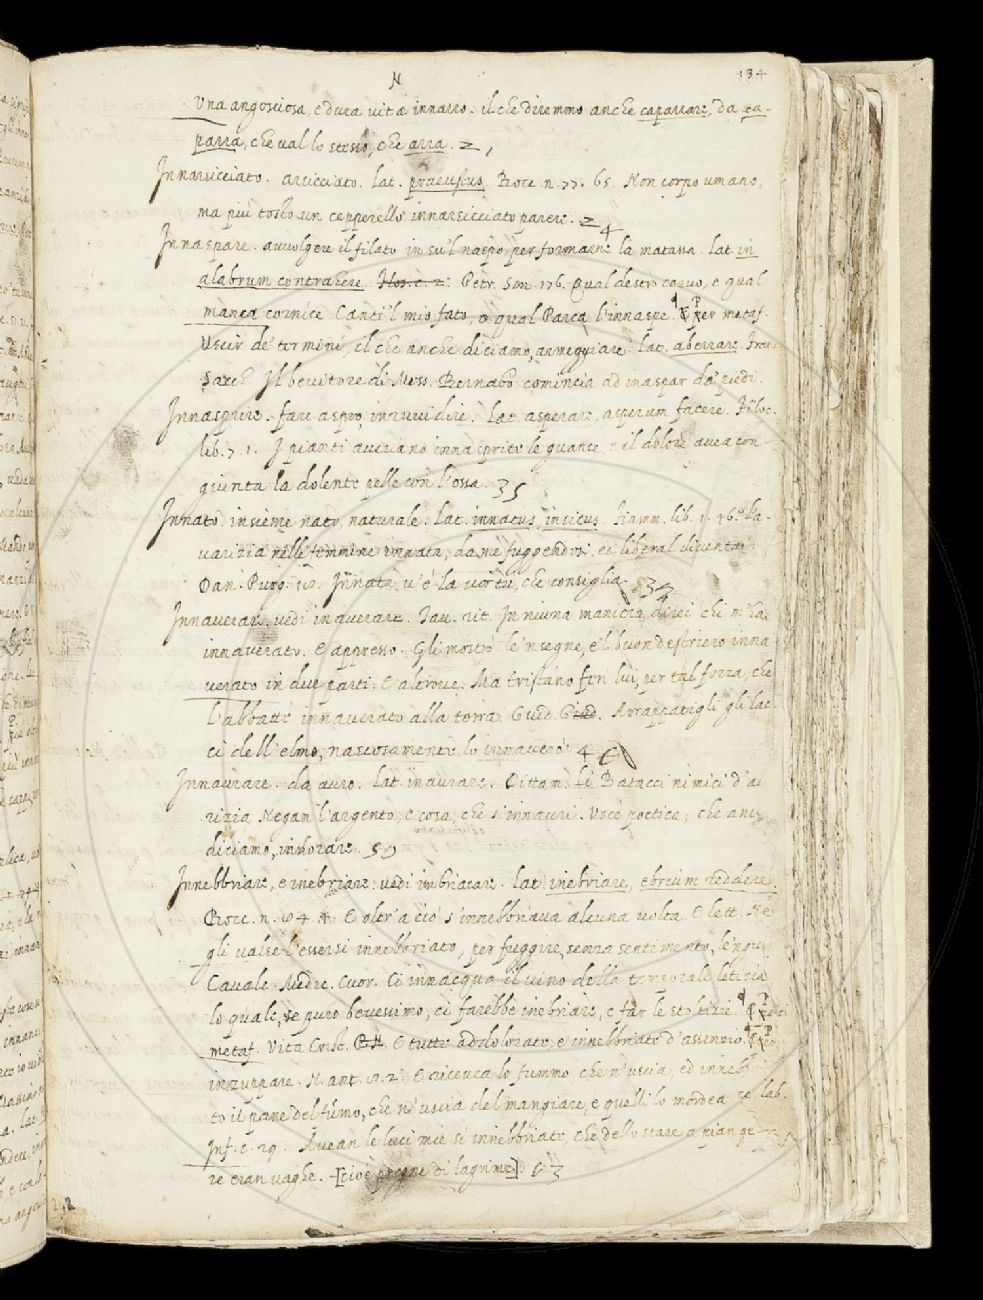 N 134
Una angosciosa, e dura vita innarro. il che diremmo anche caparrare, da ca-
parra, che val lo stesso, che arra. 2,
Innarsicciato. arsicciato. lat. praeustus. Bocc. n. 77. 65. Non corpo umano,
ma più tosto un cepperello innarsicciato parere. 2 4
Innaspare. avvolgere il filato in su'l naspo, per formarne la matassa. lat. in
alabrum contrahere. Petr. Son. 176. Qual destro corvo, e qual
manca cornice Canti 'l mio fato, o qual Parca l'innaspe. ¶ P per metaf.
Uscir de' termini, il che anche diciamo, armeggiare. Lat. aberrare. Franc.
Sacch. Il bevitore di Mess. Bernabò comincia ad inaspar da piedi.
Innasprire. fare aspro, inruvidire. Lat. asperare, asperum facere. Filoc.
lib. 7. 1. I pianti aveano innasprite le guance, e il dolore avea con-
giunta la dolente pelle con l'ossa. 35
Innato. insieme nato, naturale. Lat. innatus, insitus. Fiamm. lib. 1. 46. La-
varizia nelle femmine innata, da me fuggendosi, e liberal diventai
Dan. Purg. 18. Innata v'è la vertù, che consiglia. 34
Innaverare. vedi inaverare. Tav. rit. In niuna maniera direi chi m'ha
innaverato. E appresso. Gli mostrò le 'nsegne, e 'l buon destriero inna-
verato in due parti. E altrove. Ma Tristano ferì lui, per tal forza, che
l'abbattè innaverato alla terra. Guid. Giud. Arrappatigli gli lac-
ci dell'elmo, nascosamente lo innaverò. 4
Innaurare. da auro. Lat. inaurare. Dittam. Li Batacci nimici d'a
rizia Negan l'argento, e cosa, che s'innauri. Voce poetica, che anc
diciamo, innorare. 59
Innebbriare, e inebriare: vedi imbriacare. Lat. inebriare, ebrium reddere.
Bocc. n. 64. 4. E oltr'a ciò s'innebbriava alcuna volta. E lett. Né
gli valse l'essersi innebbriato, per fuggire, senza sentimento, le 'ngiu
Cavalc. Medic. Cuor. Ci innacqua il vino della temporale letizia
lo quale, se puro bevessimo, ci farebbe inebriare, e far le stoltizie. ¶ P per
metaf. Vita Crist. E tutte addolorate, e innebbriate d'assenzio. ¶ P per
inzuppare. N. ant. E riceveva lo fummo, che n'uscia, ed innebb
to il pane del fumo, che n'uscia del mangiare, e quelli lo mordea
Inf. c. 29. Avean le luci mie sì innebbriate, che dello stare a piange-
re eran vaghe. [cioè pregne di lagrime] 63